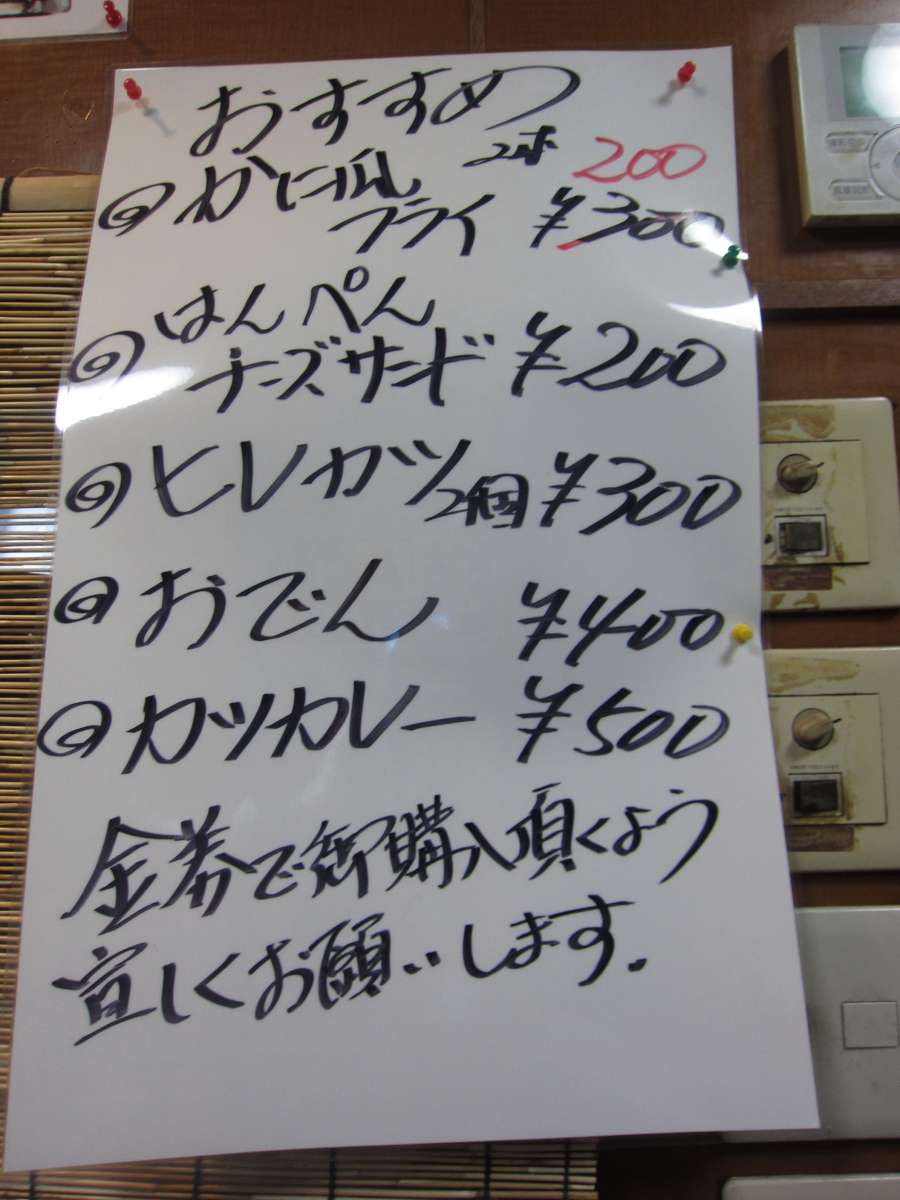 おすすめ
◎かに爪 2本 200
フライ ¥300
◎はんぺん
チーズサンド ¥200
◎ヒレカツ2個 ¥300
◎おでん ¥400
◎カツカレー ¥500
金券で御購入頂くよう
宜しくお願いします.